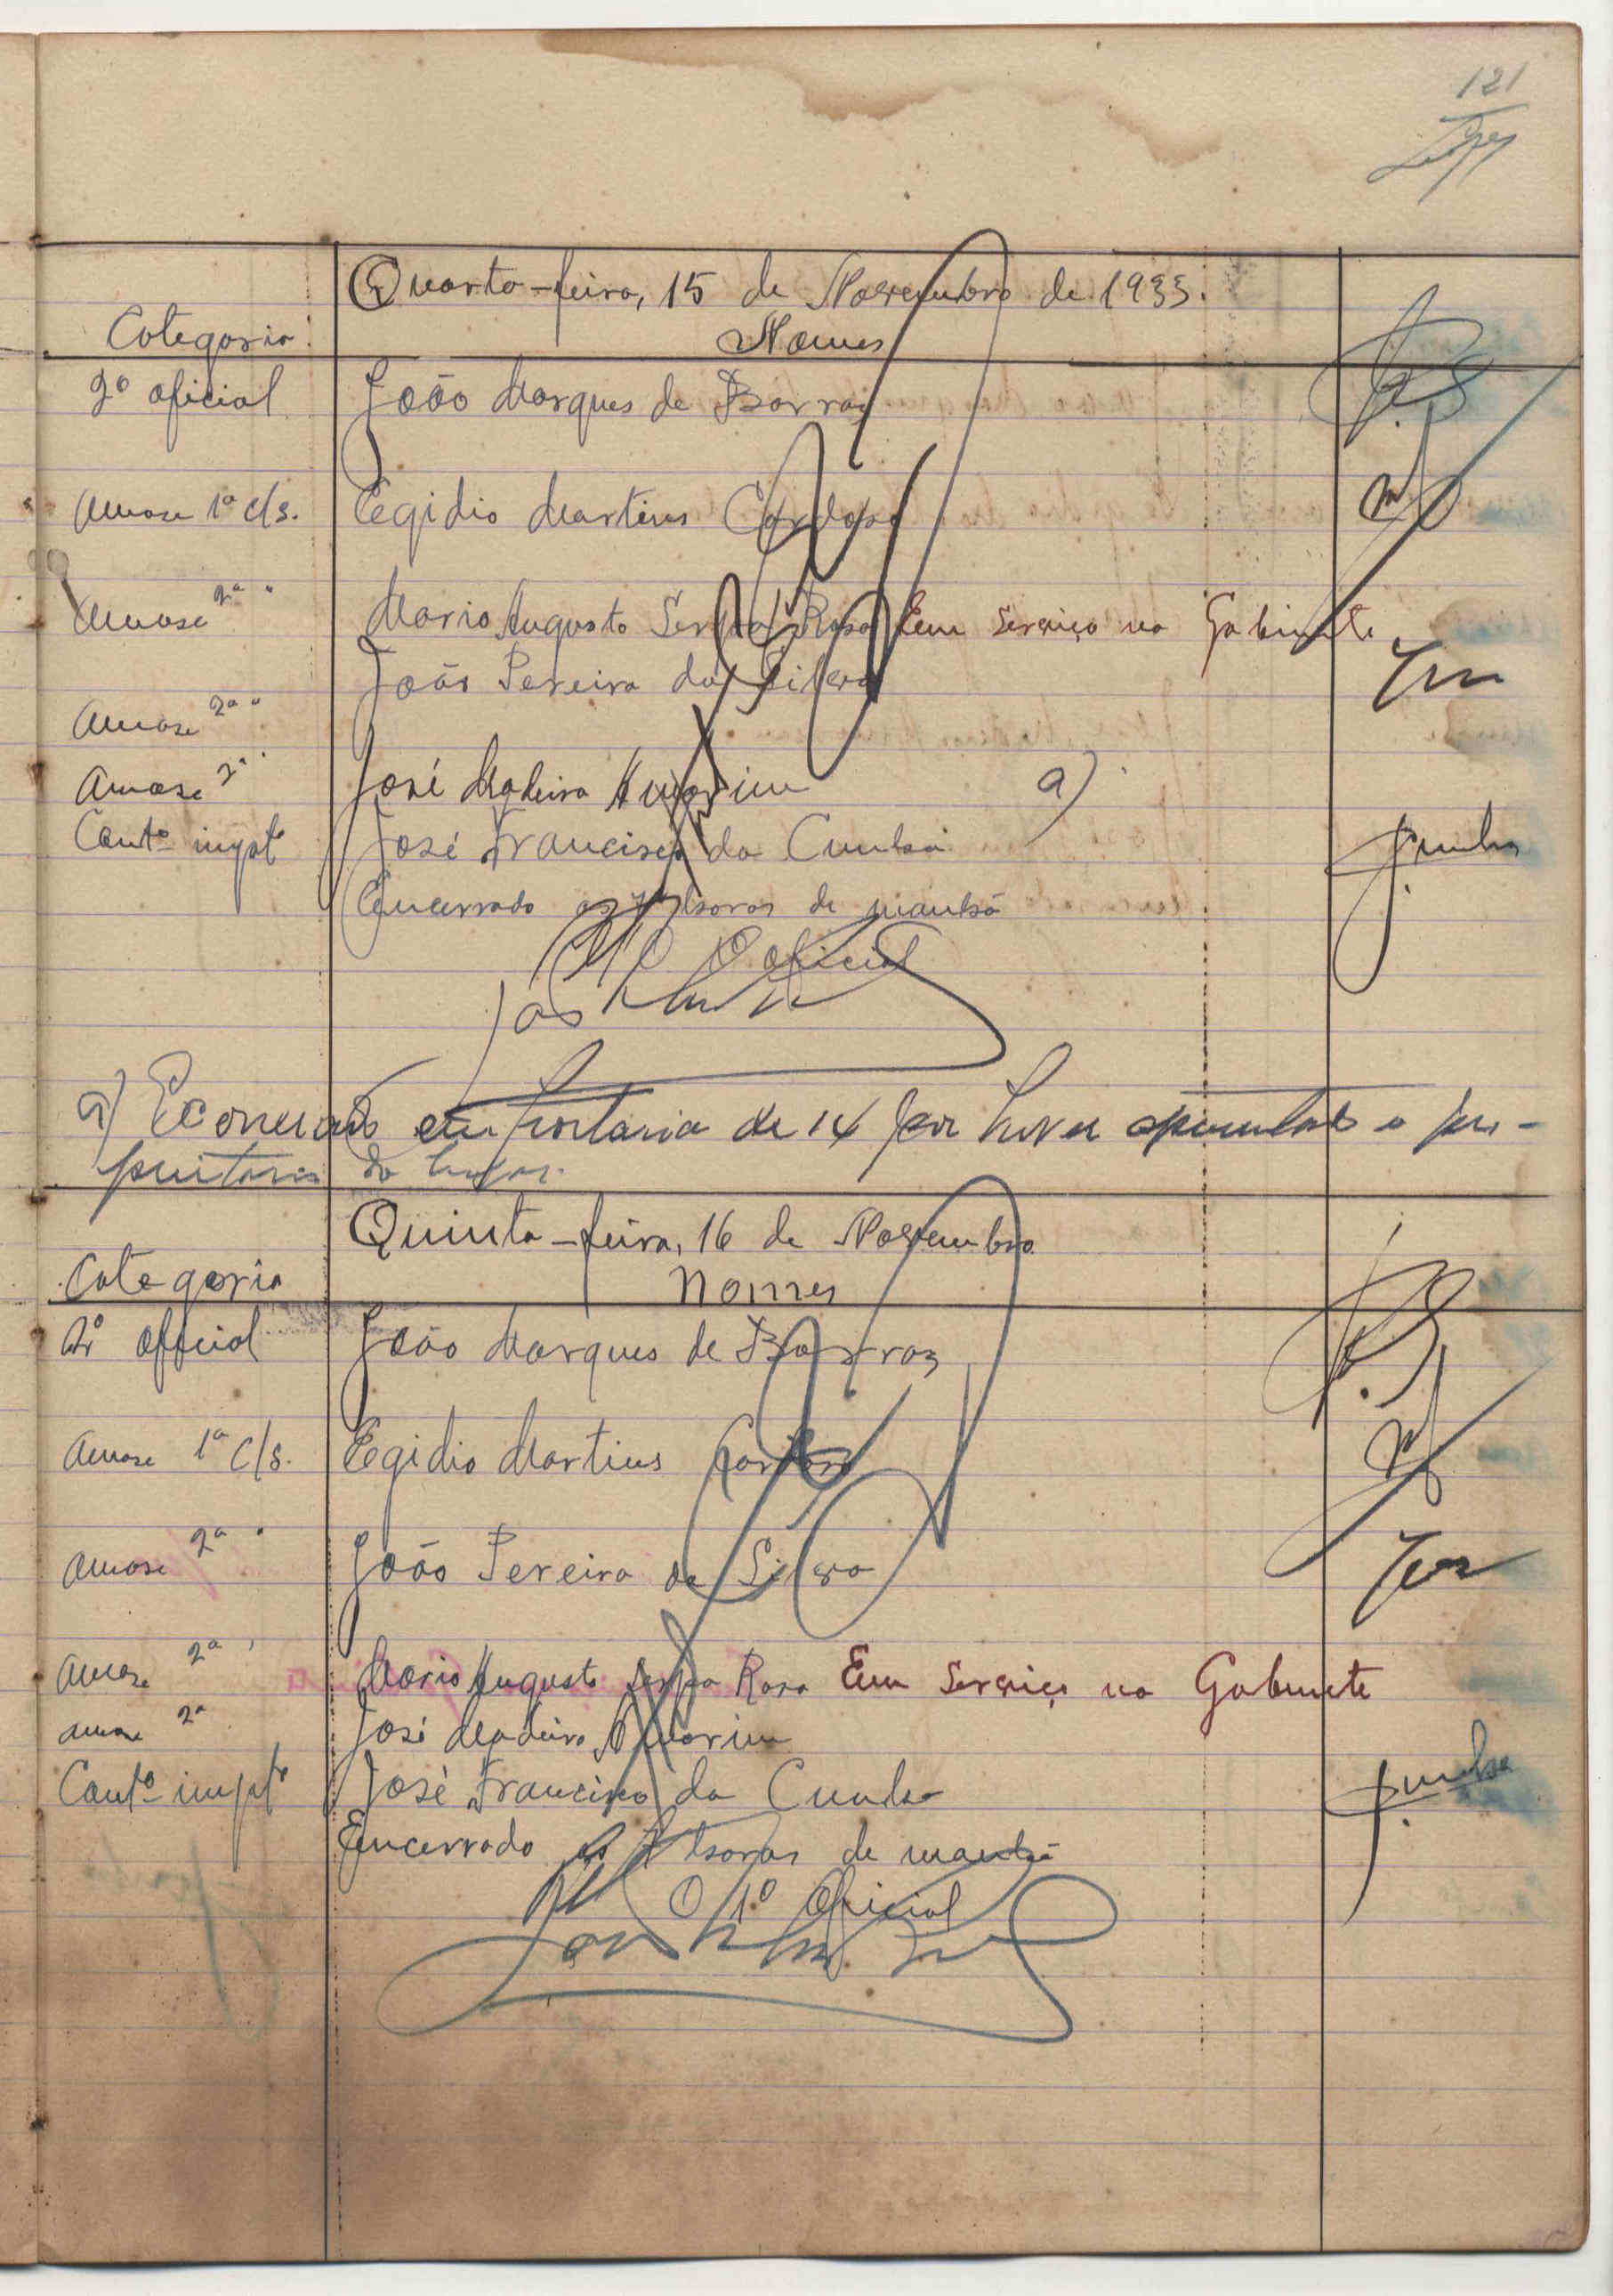 121
Lopes
Quarta-feira, 15 de Novembro de 1933.
Categoria Nomes
2º oficial João Marques de Barros
Amase 1ª cls. Egidio Martins Cardoso
Amase 2ª " Mario Augusto Serpa Rosa Em serviço no Gabinete
João Pereira da Silva
Amase 2ª "
Amase 2ª " José Madeira Amorim a)
Contº impt José Francisco da Cunha JCunha
Encerrado as 7 horas de manhã
O Oficial
a) em portaria de 14 por haver
do lugar.
Quinta-feira, 16 de Novembro
Categoria Nomes
2º official João Marques de Barros
Amase 1ª cls. Egidio Martins Cardoso
Amase 2ª " João Pereira da Silva
Amase 2ª " Mario Augusto Serpa Rosa Em serviço no Gabinete
Amase 2ª José Madeira Amorim
Contº impt José Francisco da Cunha JCunha
Encerrado as 7 horas de manhã
O 1º Oficial